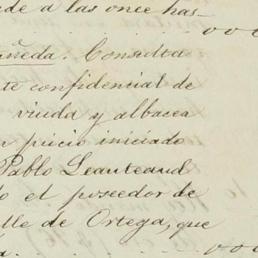 de a las once has-
añeda. Consulta
te confidencial de
viuda y albacea
n juicio iniciado
Pablo Leauteaud
o el poseedor de
lle de Ortega, que